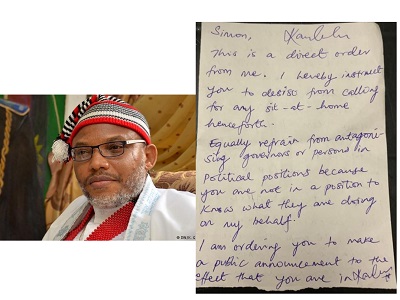 Simon,
This is a direct order
from me. I hereby instruct
you to desist from calling
for any sit-at-home
henceforth.
Equally refrain from antagoni-
sing governors or persons in
political positions because
you are not in a position to
know what they are doing
on my behalf.
I am ordering you to make
a public announcement to the
effect that you are in